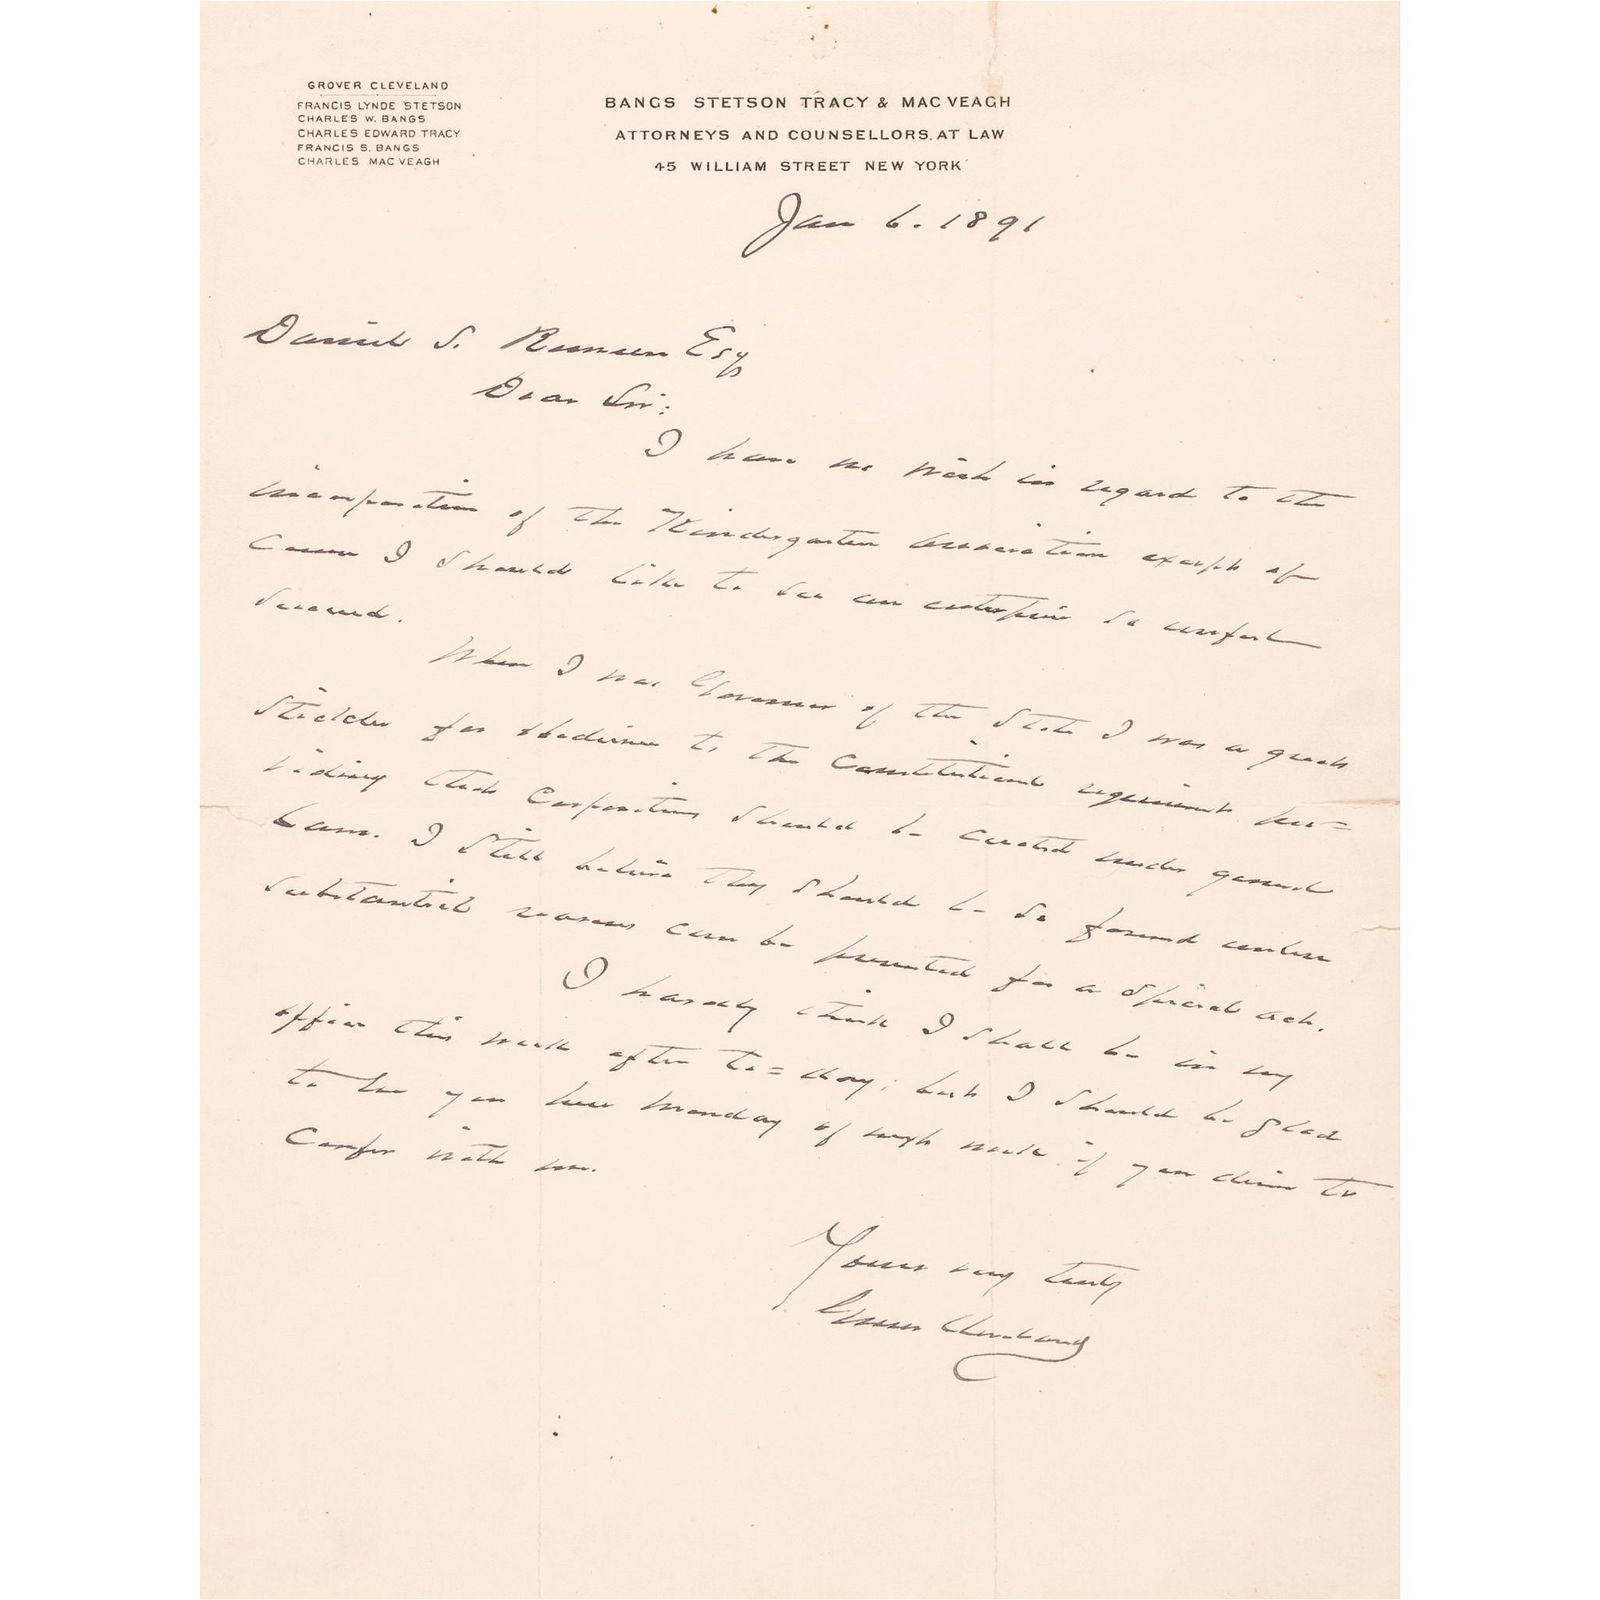 GROVER CLEVELAND
FRANCIS LYNDE STETSON
CHARLES W. BANGS
CHARLES EDWARD TRACY
FRANCIS S. BANGS
CHARLES MAC VEAGH
BANGS STETSON TRACY & MAC VEAGH
ATTORNEYS AND COUNSELLORS. AT LAW
45 WILLIAM STREET NEW YORK
Jan 6. 1891
Daniel S. Remsen Esq
Dear Sir:
I have no wish in regard to the
incorporation of the Kindergarten Association except of
course I should like to see an enterprise so
succeed.
When I was Governor of the State I was a great
stickler for obedience to the Constitutional requirement pro=
viding that Corporations should be created under general
laws. I still believe they should be so formed unless
substantial reasons can be presented for a special act.
I hardly think I shall be in my
office this week after to=day; but I should be glad
to see you here Monday of next week if you desire to
Confer with me.
Yours very truly
Grover Cleveland